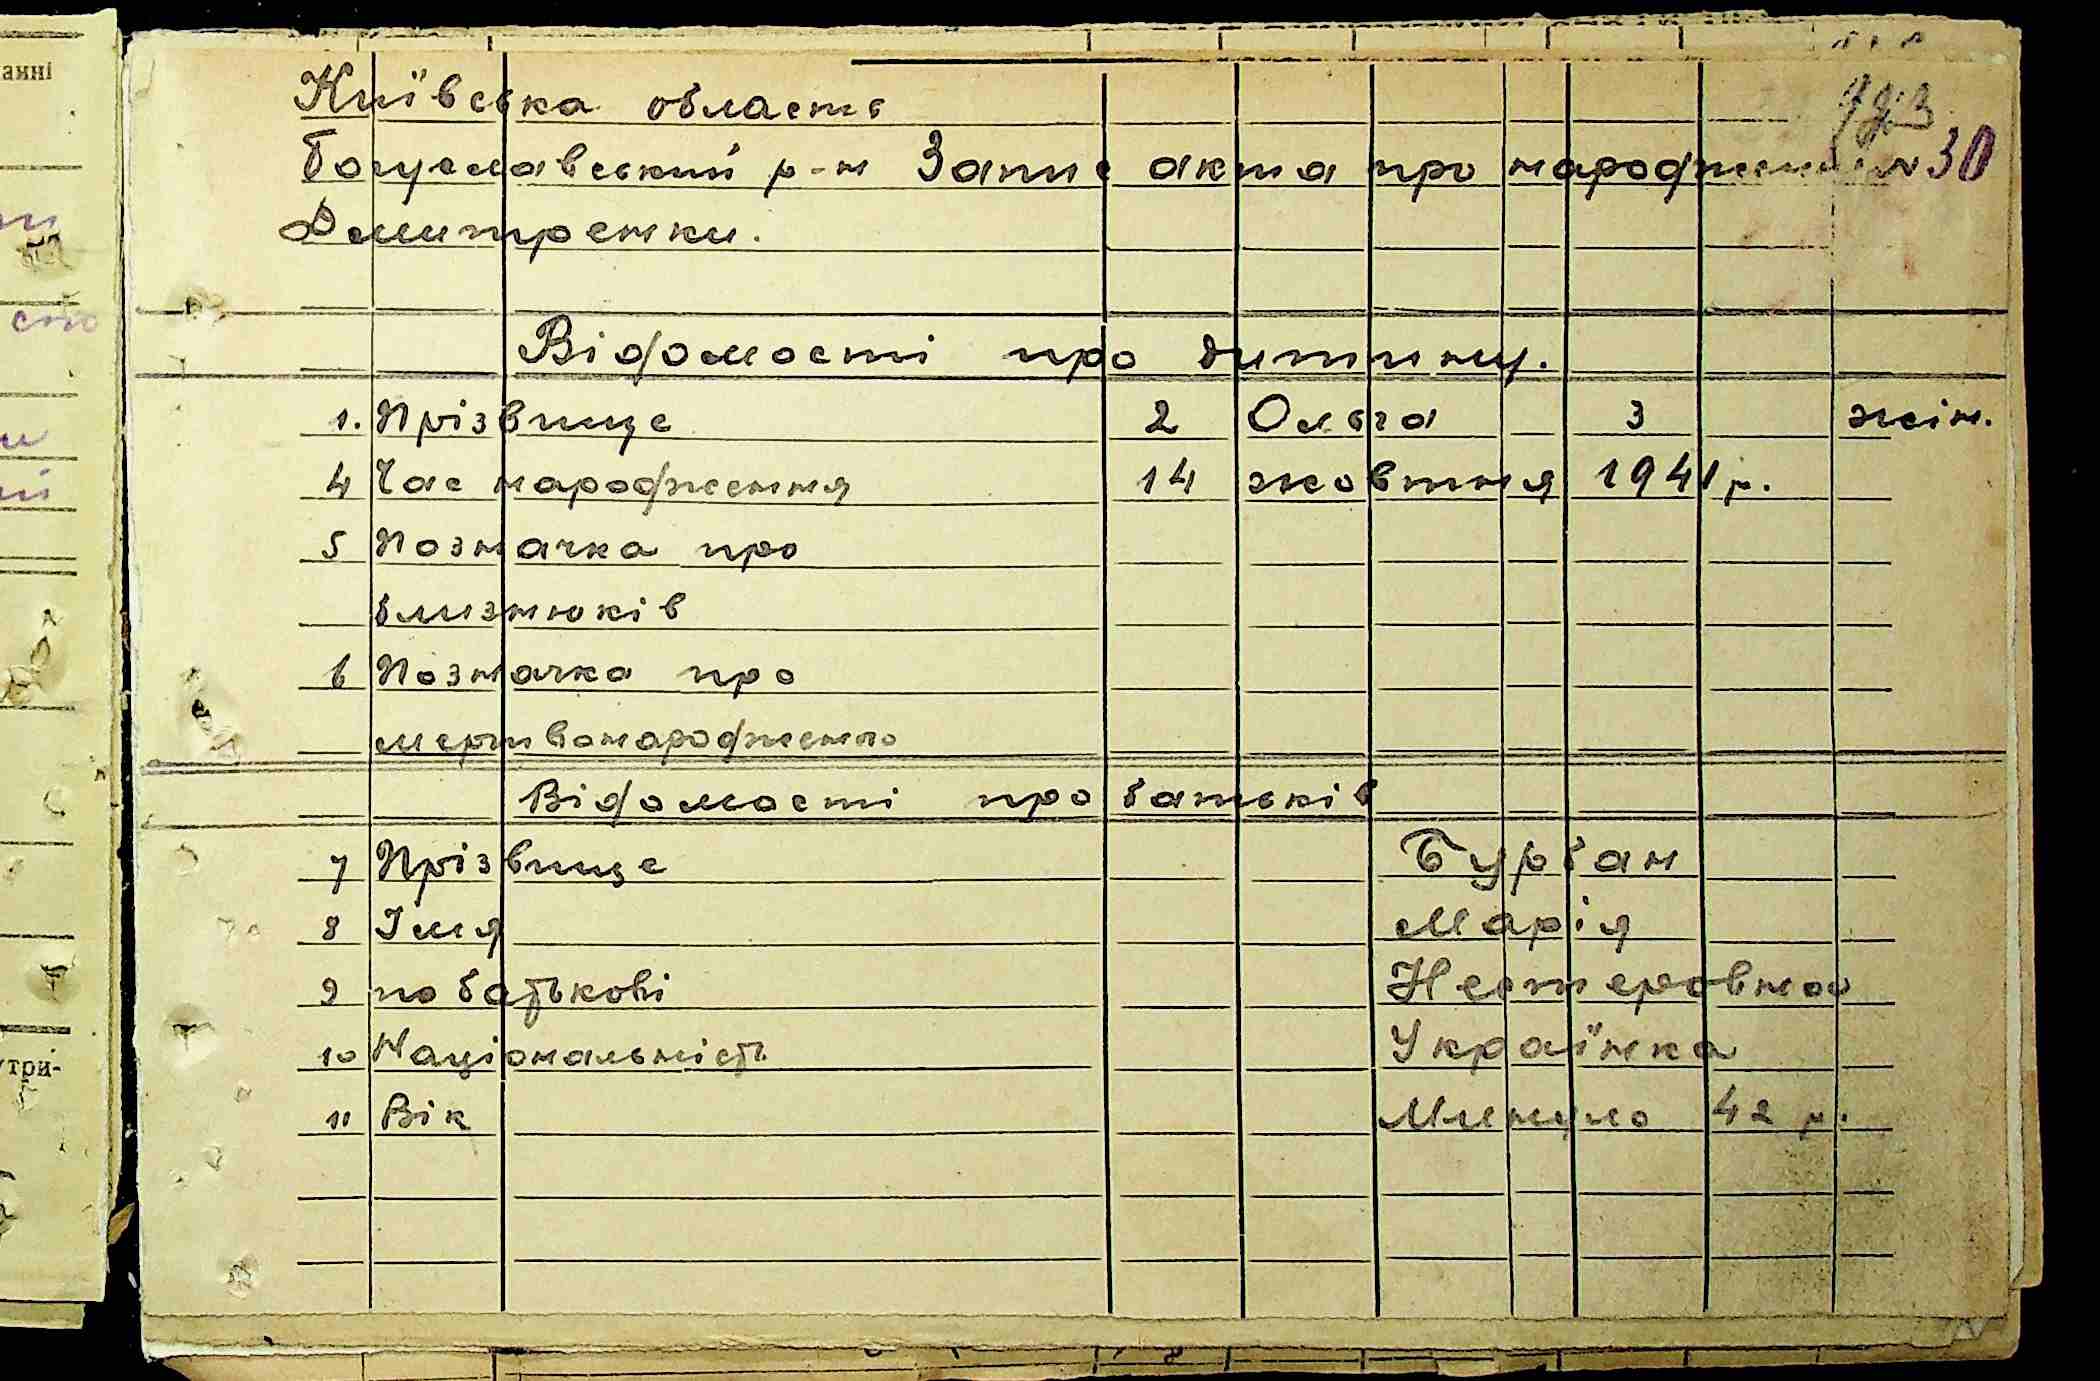 анні
Київська область
Богуславський р-н Запис акта про народження № 30
Дмитренки.
Відомості про дитину.
1. Прізвище 2 Ольга 3 жін.
4 Час народження 14 жовтня 1941 р.
5 Позначка про
близнюків
6 Позначка про
мертвонародженого
Відомості про батьків
7 Прізвище Бурбан
8 Імя Марія
9 по батькові Нестеровной
10 Національність Українка
утри-
11 Вік Минуло 42 р.